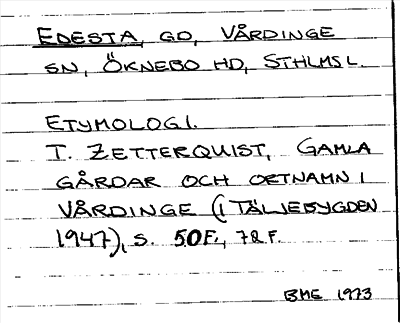 EDESTA, GD, VÅRDINGE
SN, ÖKNEBO HD, STHLMS L.
ETYMOLOGI.
T. ZETTERQUIST, GAMLA
GÅRDAR OCH ORTNAMN I
VÅRDINGE (I TÄLJEBYGDEN
1947), S. 50F., 78 F.
BME 1973